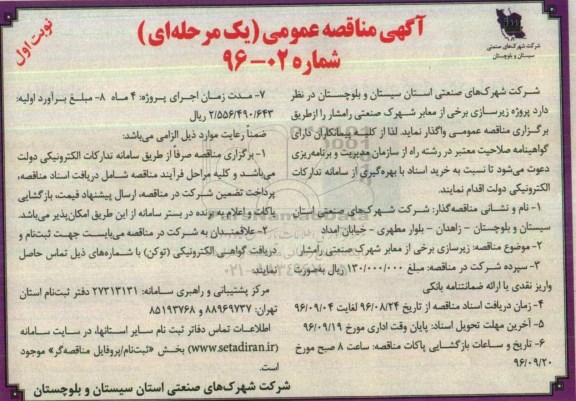 شرکت شهرک‌های صنعتی
سیستان و بلوچستان
آگهی مناقصه عمومی (یک مرحله‌ای)
شماره ۰۲-۹۶
نوبت اول
شرکت شهرک‌های صنعتی استان سیستان و بلوچستان در نظر
دارد پروژه زیرسازی برخی از معابر شهرک صنعتی رامشار را ازطریق
برگزاری مناقصه عمومی واگذار نماید. لذا از کلیه پیمانکاران دارای
گواهینامه صلاحیت معتبر در رشته راه از سازمان مدیریت و برنامه‌ریزی
دعوت می‌شود تا نسبت به خرید اسناد با بهره‌گیری از سامانه تدارکات
الکترونیکی دولت اقدام نمایند.
۱- نام و نشانی مناقصه‌گذار: شرکت شهرک‌های صنعتی استان
سیستان و بلوچستان - زاهدان - بلوار مطهری - خیابان امداد
۲- موضوع مناقصه: زیرسازی برخی از معابر شهرک صنعتی رامشار
۳- سپرده شرکت در مناقصه: مبلغ ۱۳۰/۰۰۰/۰۰۰ ریال به‌صورت
واریز نقدی یا ارائه ضمانتنامه بانکی
۴- زمان دریافت اسناد مناقصه از تاریخ ۹۶/۰۸/۲۴ لغایت ۹۶/۰۹/۰۴
۵- آخرین مهلت تحویل اسناد: پایان وقت اداری مورخ ۹۶/۰۹/۱۹
۶- تاریخ و ساعات بازگشایی پاکات مناقصه: ساعت ۸ صبح مورخ
۹۶/۰۹/۲۰
۷- مدت زمان اجرای پروژه: ۴ ماه ۸- مبلغ برآورد اولیه:
۲/۵۵۶/۴۹۰/۶۴۳ ریال
ضمناً رعایت موارد ذیل الزامی می‌باشد:
۱- برگزاری مناقصه صرفاً از طریق سامانه تدارکات الکترونیکی دولت
می‌باشد و کلیه مراحل فرآیند مناقصه شامل دریافت اسناد مناقصه،
پرداخت تضمین شرکت در مناقصه، ارسال پیشنهاد قیمت، بازگشایی
پاکات و اعلام به برنده در بستر سامانه از این طریق امکان‌پذیر می‌باشد.
۲- علاقمندان به شرکت در مناقصه می‌بایست جهت ثبت‌نام و
دریافت گواهی الکترونیکی (توکن) با شماره‌های ذیل تماس حاصل
نمایند
مرکز پشتیبانی و راهبری سامانه: ۲۷۳۱۳۱۳۱ دفتر ثبت‌نام استان
تهران: ۸۸۹۶۹۷۳۷ و ۸۵۱۹۳۷۶۸
اطلاعات تماس دفاتر ثبت نام سایر استانها، در سایت سامانه
(www.setadiran.ir) بخش «ثبت‌نام/پروفایل مناقصه‌گر» موجود
است.
شرکت شهرک‌های صنعتی استان سیستان و بلوچستان